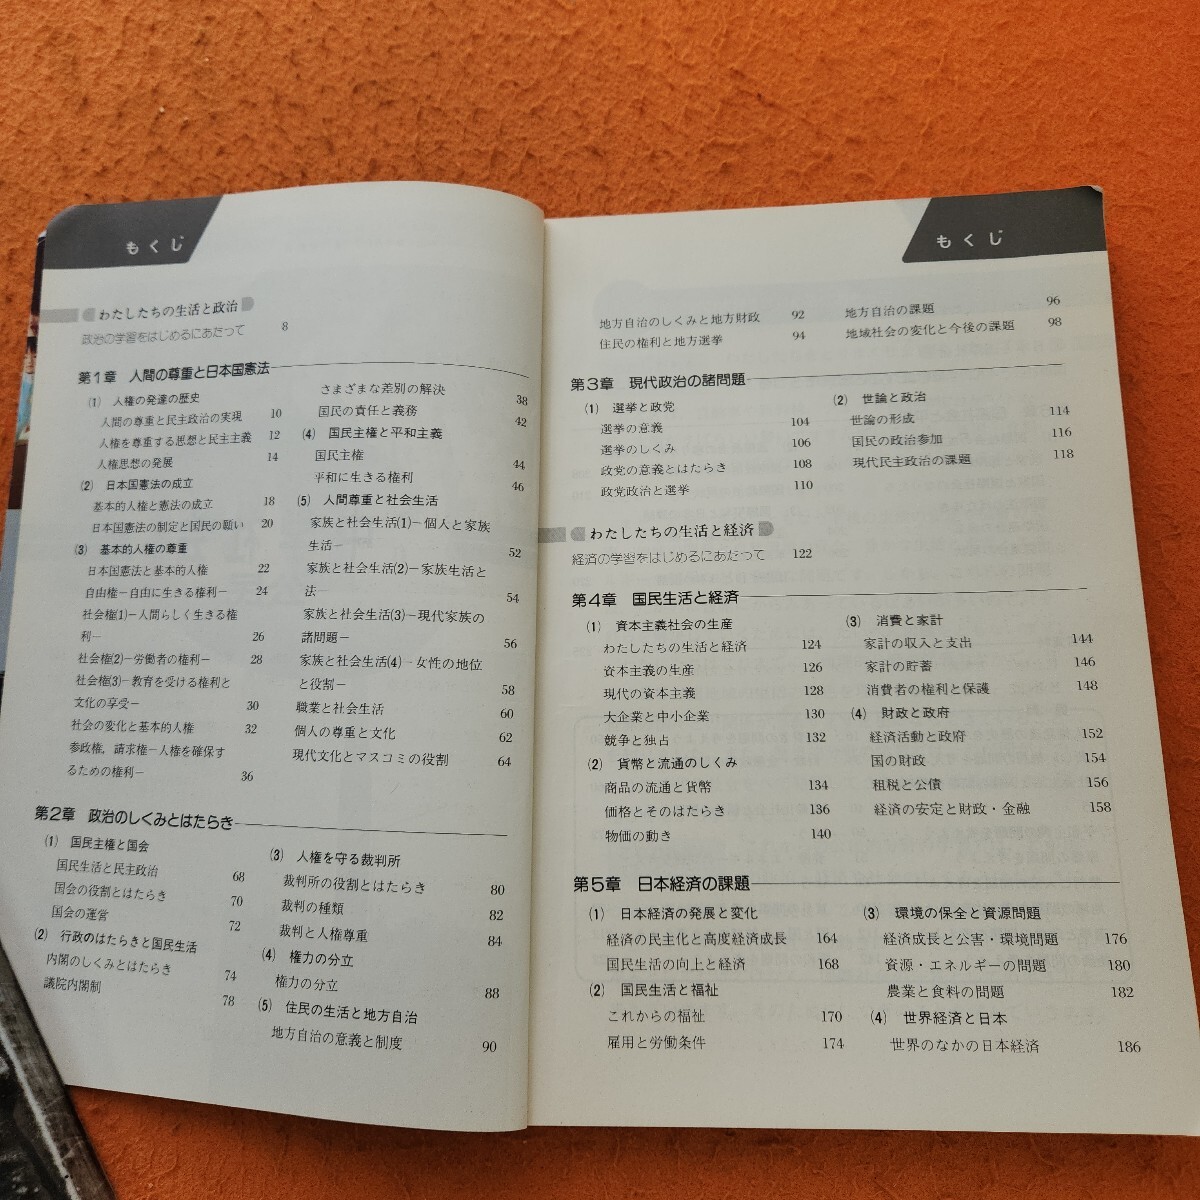 もくじ
わたしたちの生活と政治
政治の学習をはじめるにあたって 8
第1章 人間の尊重と日本国憲法
(1) 人権の発達の歴史
人間の尊重と民主政治の実現 10
人権を尊重する思想と民主主義 12
人権思想の発展 14
(2) 日本国憲法の成立
基本的人権と憲法の成立 18
日本国憲法の制定と国民の願い 20
(3) 基本的人権の尊重
日本国憲法と基本的人権 22
自由権−自由に生きる権利− 24
社会権(1)−人間らしく生きる権
利− 26
社会権(2)−労働者の権利− 28
社会権(3)−教育を受ける権利と
文化の享受− 30
社会の変化と基本的人権 32
参政権,請求権−人権を確保す
るための権利− 36
さまざまな差別の解決 38
国民の責任と義務 42
(4) 国民主権と平和主義
国民主権 44
平和に生きる権利 46
(5) 人間尊重と社会生活
家族と社会生活(1)−個人と家族
生活− 52
家族と社会生活(2)−家族生活と
法− 54
家族と社会生活(3)−現代家族の
諸問題− 56
家族と社会生活(4)−女性の地位
と役割− 58
職業と社会生活 60
個人の尊重と文化 62
現代文化とマスコミの役割 64
第2章 政治のしくみとはたらき
(1) 国民主権と国会
国民生活と民主政治 68
国会の役割とはたらき 70
国会の運営 72
(2) 行政のはたらきと国民生活
内閣のしくみとはたらき 74
議院内閣制 78
(3) 人権を守る裁判所
裁判所の役割とはたらき 80
裁判の種類 82
裁判と人権尊重 84
(4) 権力の分立
権力の分立 88
(5) 住民の生活と地方自治
地方自治の意義と制度 90
もくじ
地方自治のしくみと地方財政 92
住民の権利と地方選挙 94
地方自治の課題 96
地域社会の変化と今後の課題 98
第3章 現代政治の諸問題
(1) 選挙と政党
選挙の意義 104
選挙のしくみ 106
政党の意義とはたらき 108
政党政治と選挙 110
(2) 世論と政治
世論の形成 114
国民の政治参加 116
現代民主政治の課題 118
わたしたちの生活と経済
経済の学習をはじめるにあたって 122
第4章 国民生活と経済
(1) 資本主義社会の生産
わたしたちの生活と経済 124
資本主義の生産 126
現代の資本主義 128
大企業と中小企業 130
競争と独占 132
(2) 貨幣と流通のしくみ
商品の流通と貨幣 134
価格とそのはたらき 136
物価の動き 140
(3) 消費と家計
家計の収入と支出 144
家計の貯蓄 146
消費者の権利と保護 148
(4) 財政と政府
経済活動と政府 152
国の財政 154
租税と公債 156
経済の安定と財政・金融 158
第5章 日本経済の課題
(1) 日本経済の発展と変化
経済の民主化と高度経済成長 164
国民生活の向上と経済 168
(2) 国民生活と福祉
これからの福祉 170
雇用と労働条件 174
(3) 環境の保全と資源問題
経済成長と公害・環境問題 176
資源・エネルギーの問題 180
農業と食料の問題 182
(4) 世界経済と日本
世界のなかの日本経済 186